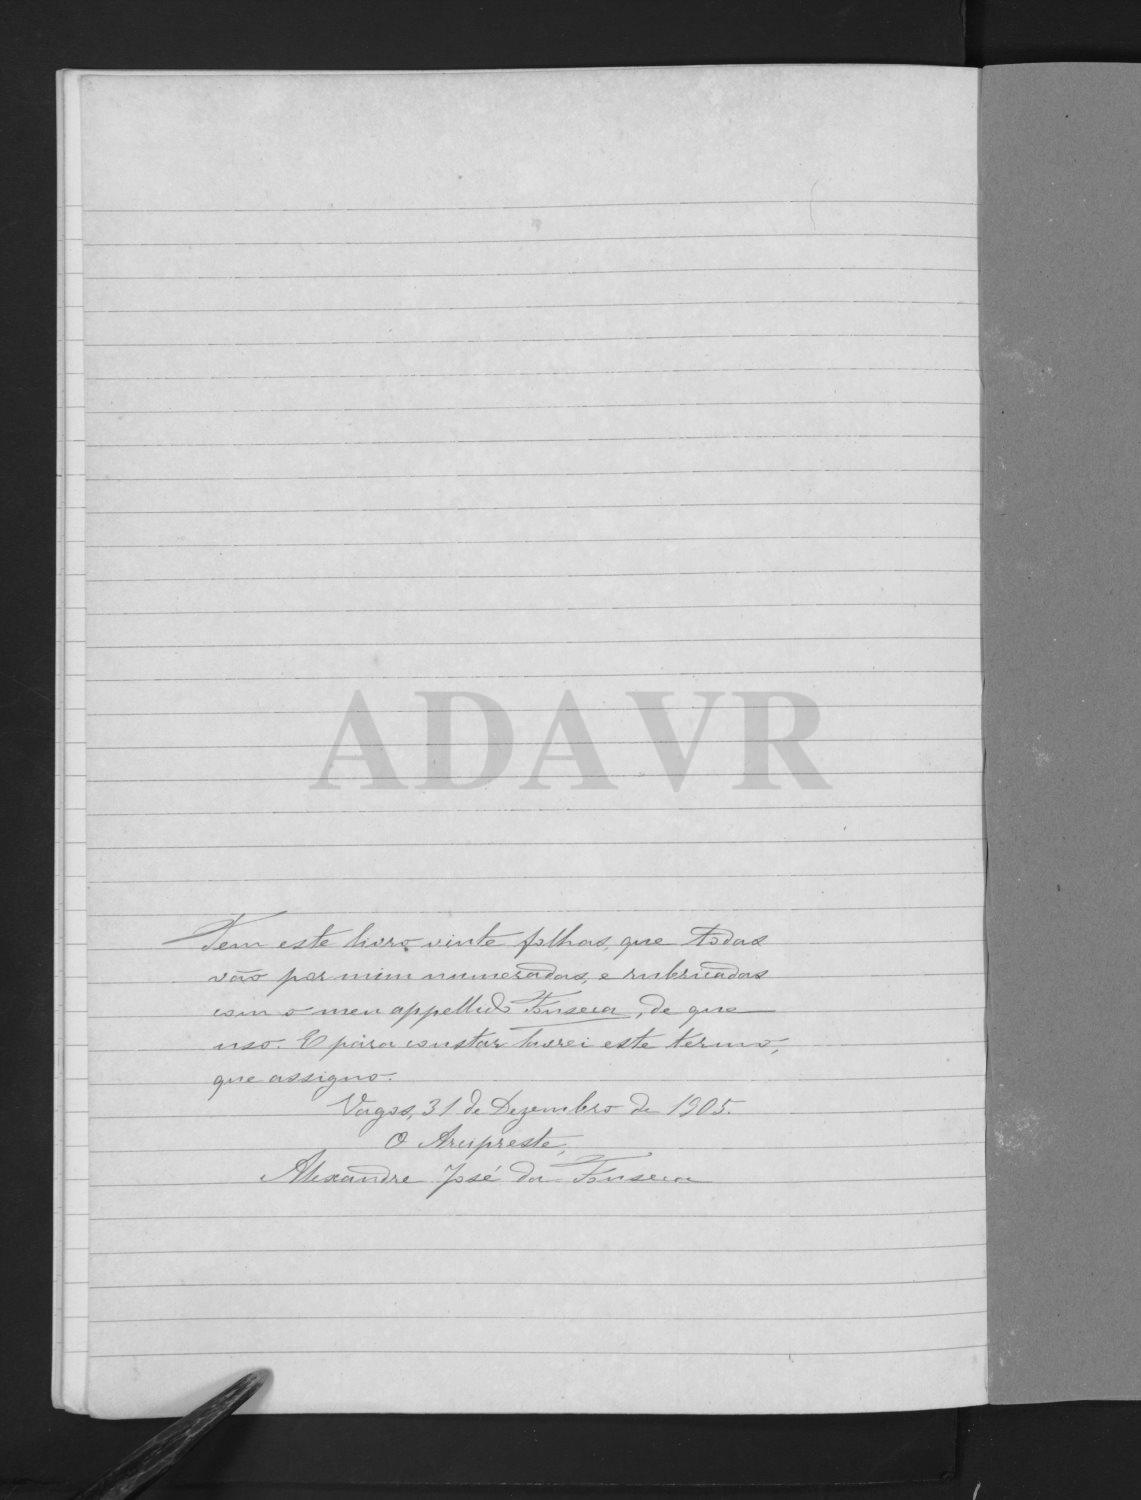 ADAVR
Tem este livro vinte folhas, que todas
vão por mim numeradas, e rubricadas
com o meu appellido Fonseca, de que
uso. E para constar lavrei este termo,
que assigno.
Vagos, 31 de Dezembro de 1905.
O Arcipreste,
Alexandre José da Fonseca